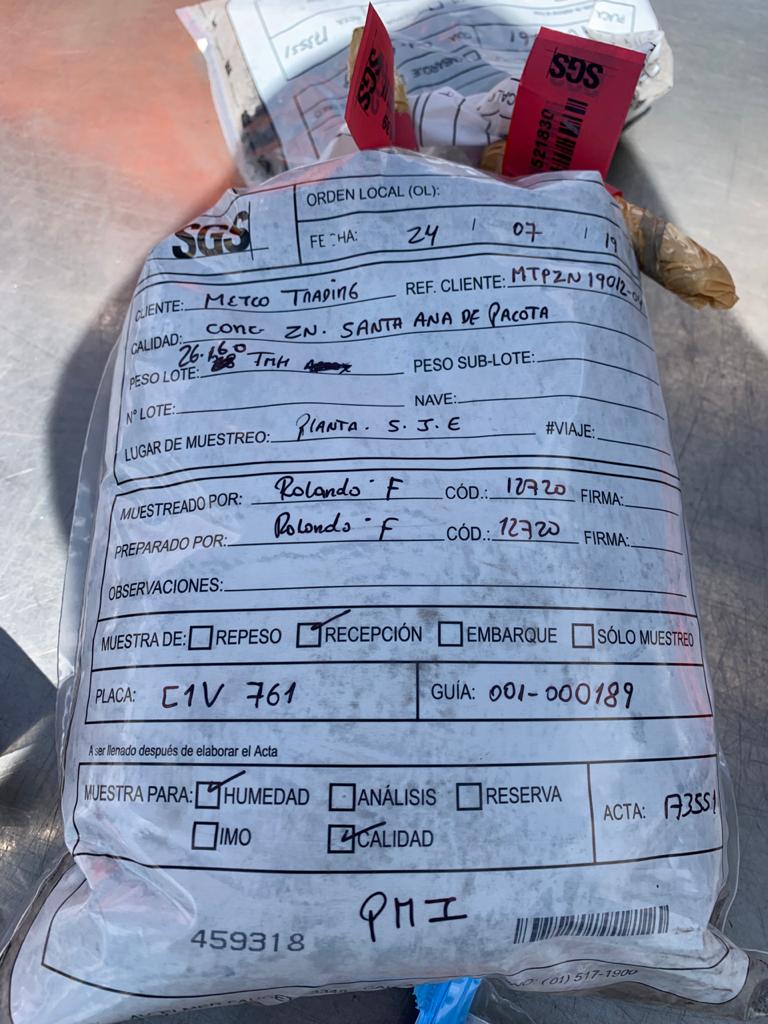 173551
SGS
SGS
521830
SGS
ORDEN LOCAL (OL):
FECHA: 24 / 07 / 19
CLIENTE: METCO TRADING REF. CLIENTE: MTPZN19012-
CALIDAD: CONC ZN. SANTA ANA DE PACOTA
PESO LOTE: 26.160 TMH PESO SUB-LOTE:
N° LOTE: NAVE:
LUGAR DE MUESTREO: PLANTA. S. J. E #VIAJE:
MUESTREADO POR: Rolando F CÓD.: 12720 FIRMA:
PREPARADO POR: Rolando F CÓD.: 12720 FIRMA:
OBSERVACIONES:
MUESTRA DE: REPESO RECEPCIÓN EMBARQUE SÓLO MUESTREO
PLACA: C1V 761 GUÍA: 001-000189
A ser llenado después de elaborar el Acta
MUESTRA PARA: HUMEDAD ANÁLISIS RESERVA ACTA: 173551
IMO CALIDAD
PMI
459318
(01) 517-1900